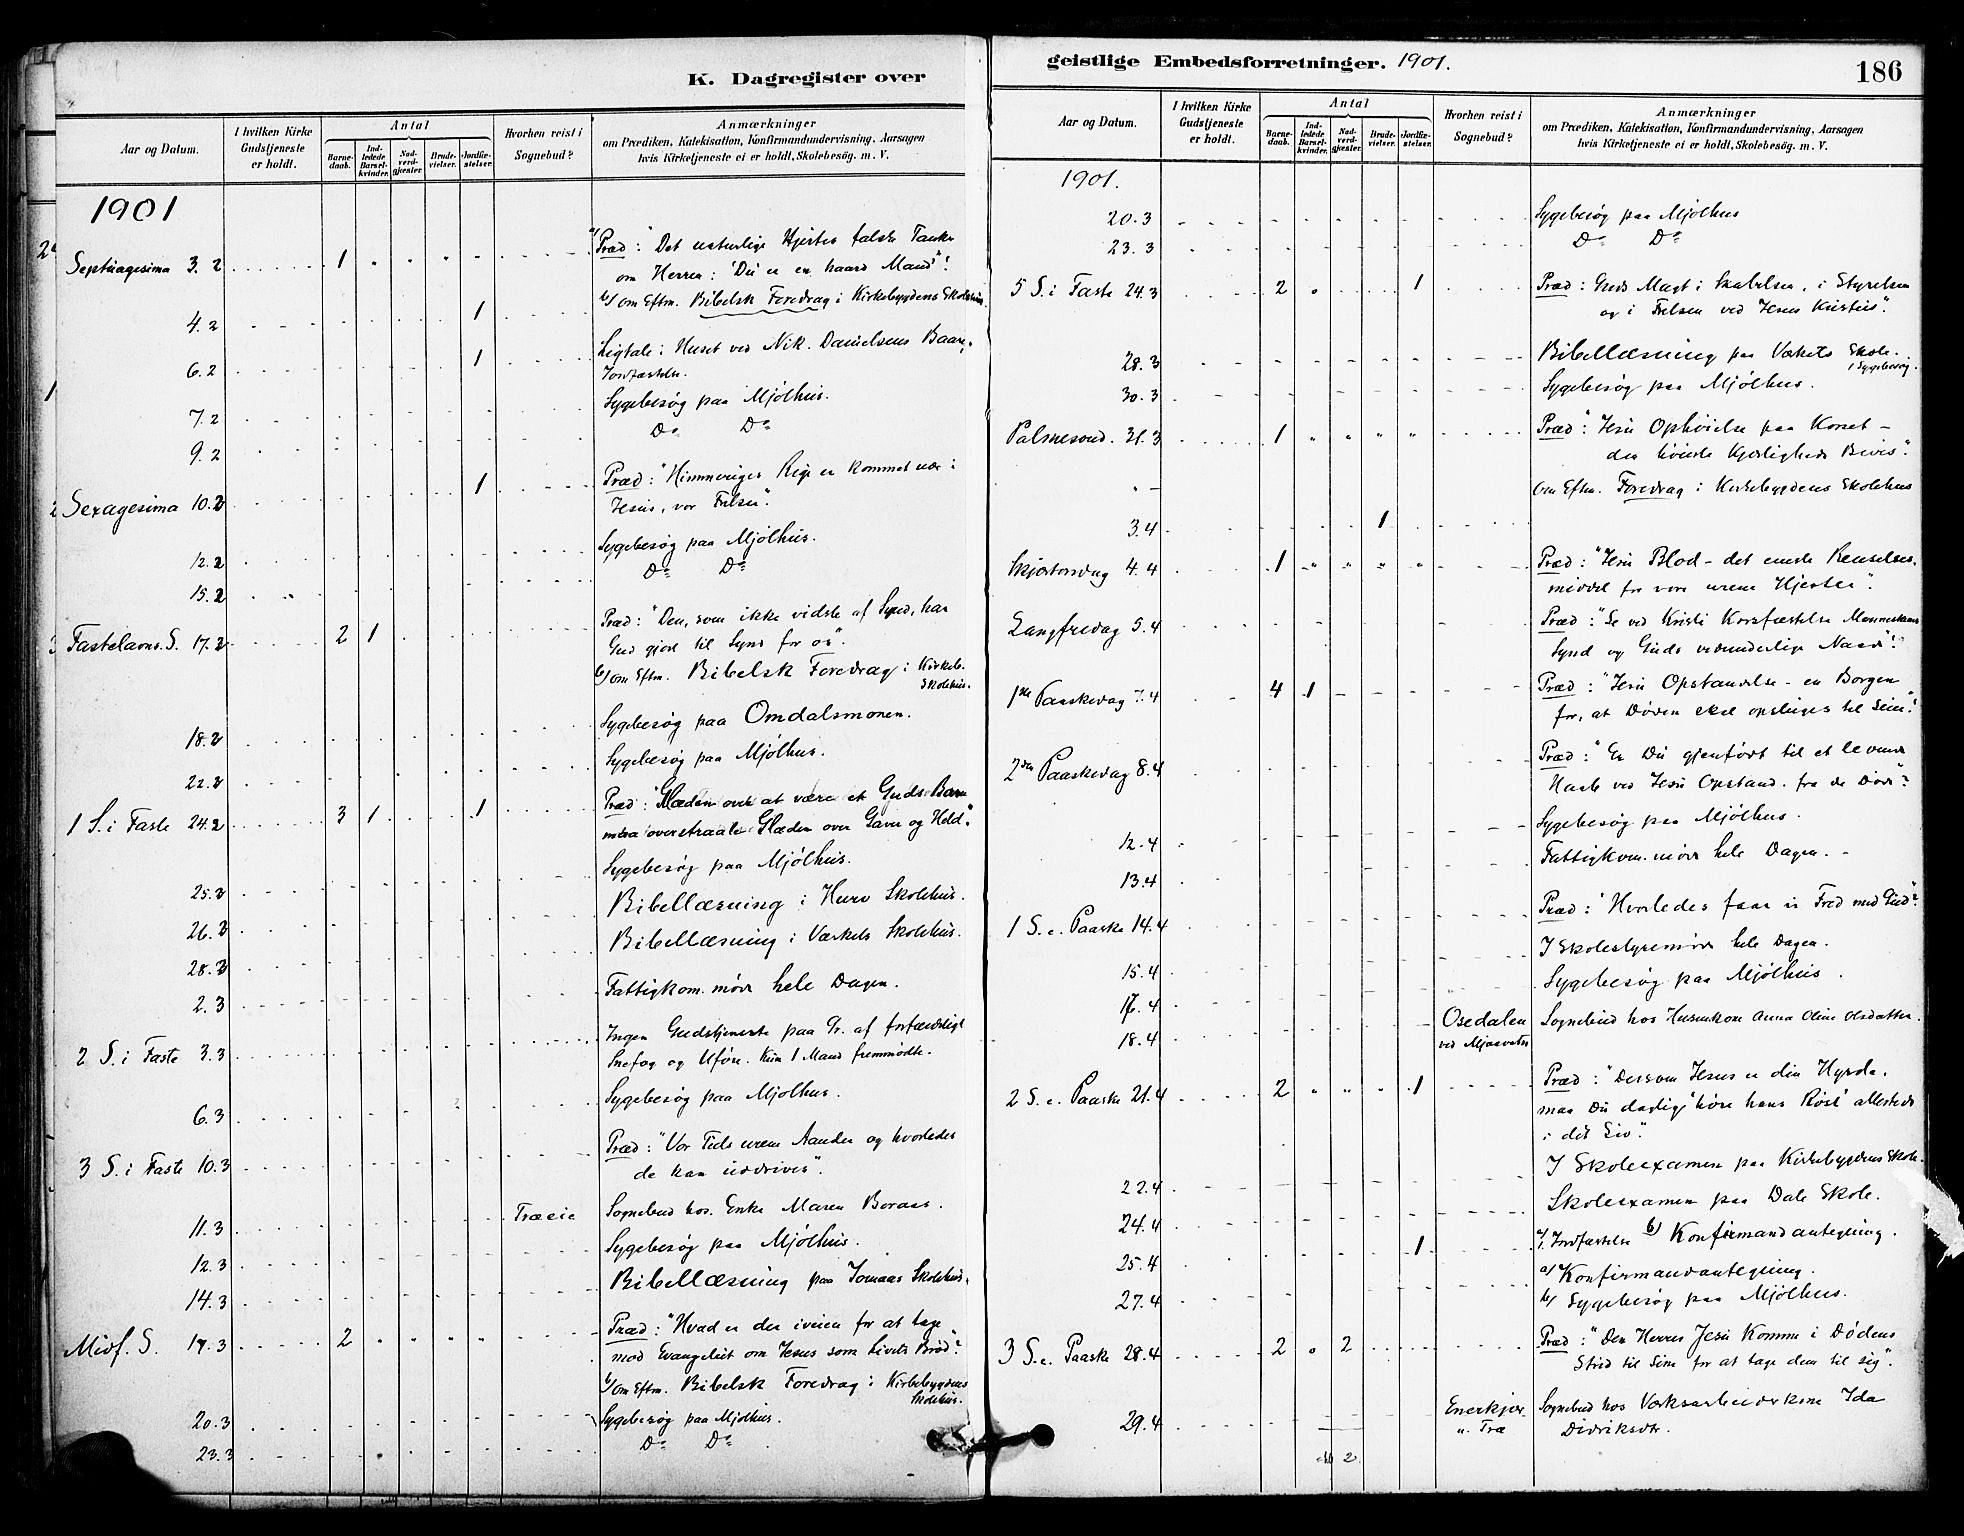 K. Dagregister over
Aar og Datum.
I hvilken Kirke Gudstjeneste er holdt.
Antal
Barnedaab.
Indledede Barselkvinder.
Nadverdgjester.
Brudevielser.
Jordfæstelser.
Hvorhen reist i Sognebud?
Anmærkninger
om Prædiken, Katekisation, Konfirmandundervisning, Aarsagen
hvis Kirketjeneste ei er holdt, Skolebesøg. m. V.
1901
Septuagesima 3.2 1 a/ Præd: "Det naturlige Hjertes falske Tanke
om Herren: 'Du er en haard Mand'"!
b/ om Eftm. Bibelsk Foredrag i Kirkebygdens Skolehus.
4.2 1
Ligtale i Huset ved Nik. Danielsens Baare,
6.2 1 Jordfæstelse.
Sygebesøg paa Mjölhus.
7.2 Do Do
9.2
Sexagesima 10.2 1 Præd: "Himmeriges Rige er kommet nær i
Jesus, vor Frelser".
Sygebesøg paa Mjölhus.
12.2 Do Do
15.2
Fastelavns S. 17.2 2 1 Præd: "Den, som ikke vidste af Synd, har
Gud gjort til Synd for os".
b/ om Eftm. Bibelsk Foredrag i Kirkeb.
Skolehus.
Sygebesøg paa Omdalsmonen.
18.2
Sygebesøg paa Mjölhus.
22.2
1 S. i Faste 24.2 3 1 1 Præd: "Glæden over at være et Guds Barn
maa overstraale Glæden over Gaver og Held".
Sygebesøg paa Mjölhus.
25.2
Bibellæsning i Hurv Skolehus.
26.2
Bibellæsning i Værkets Skolehus.
28.2
2.3 Fattigkom. møde hele Dagen.
2 S. i Faste 3.3 Ingen Gudstjeneste paa Gr. af forfærdeligt
Snefog og Uføre. Kun 1 Mand fremmødte.
Sygebesøg paa Mjölhus.
6.3
3 S. i Faste 10.3 Præd: "Vor Tids urene Aander og hvorledes
de kan uddrives".
11.3 Træeie Sognebud hos Enke Maren Boraas.
12.3 Sygebesøg paa Mjölhus.
14.3 Bibellæsning paa Jomaas Skolehus.
Midf. S. 17.3 2 Præd: "Hvad er der iveien for at tage
mod Evangeliet om Jesus som Livets Brød"?
b/ om Eftm. Bibelsk Foredrag i Kirkebygdens
Skolehus.
20.3 Sygebesøg paa Mjölhus.
23.3 Do Do
geistlige Embedsforretninger. 1901.
186
Aar og Datum.
I hvilken Kirke Gudstjeneste er holdt.
Antal
Barnedaab.
Indledede Barselkvinder.
Nadverdgjester.
Brudevielser.
Jordfæstelser.
Hvorhen reist i Sognebud?
Anmærkninger
om Prædiken, Katekisation, Konfirmandundervisning, Aarsagen
hvis Kirketjeneste ei er holdt, Skolebesøg. m. V.
1901.
20.3 Sygebesøg paa Mjölhus
23.3 Do Do
5 S. i Faste 24.3 2 1 Præd: Guds Magt i Skabelsen, i Styrelsen
og i Frelsen ved Jesus Kristus".
28.3 Bibellæsning paa Værkets Skole.
1 Sygebesøg.
30.3 Sygebesøg paa Mjölhus.
Palmesønd. 31.3 1 Præd: "Jesu Ophøielse paa Korset –
den høieste Kjærligheds Bevis".
Om Eftm. Foredrag i Kirkebygdens Skolehus
3.4 1
Skjærtorsdag 4.4 1 Præd: "Jesu Blod – det eneste Renselses-
middel for vore urene Hjerter".
Langfredag 5.4 Præd: "Se ved Kristi Korsfæstelse Menneskenes
Synd og Guds vidunderlige Naade"!
1ste Paaskedag 7.4 4 1 Præd: "Jesu Opstandelse – en Borgen
for, at Døden skal opsluges til Seier".
2den Paaskedag 8.4 Præd: "Er Du gjenfødt til et levende
Haab ved Jesu Opstand. fra de Døde"?
12.4 Sygebesøg paa Mjölhus.
13.4 Fattigkom. møde hele Dagen. –
1 S. e. Paaske 14.4 Præd: "Hvorledes faar vi Fred med Gud"?
15.4 I Skolestyremøde hele Dagen.
17.4 Sygebesøg paa Mjölhus.
18.4 Osedalen Sognebud hos Huusmkone Anna Oline Olsdatter.
ved Mjaavatn
2 S. e. Paaske 21.4 2 1 Præd: "Dersom Jesus er din Hyrde,
maa Du daglig 'høre hans Røst' allesteds
i dit Liv".
22.4 I Skoleexamen paa Kirkebygdens Skole.
24.4 Skoleexamen paa Dale Skole.
25.4 1 a/ Jordfæstelse b/ Konfirmandantegning.
27.4 a/ Konfirmandantegning.
b/ Sygebesøg paa Mjölhus.
3 S. e. Paaske 28.4 2 2 Præd: "Den Herres Jesu Komme i Dødens
Stund til Sine for at tage dem til sig".
29.4 Enerkjær Sognebud hos Værksarbeiderkone Ida
u. Træ Didriksdtr.
2